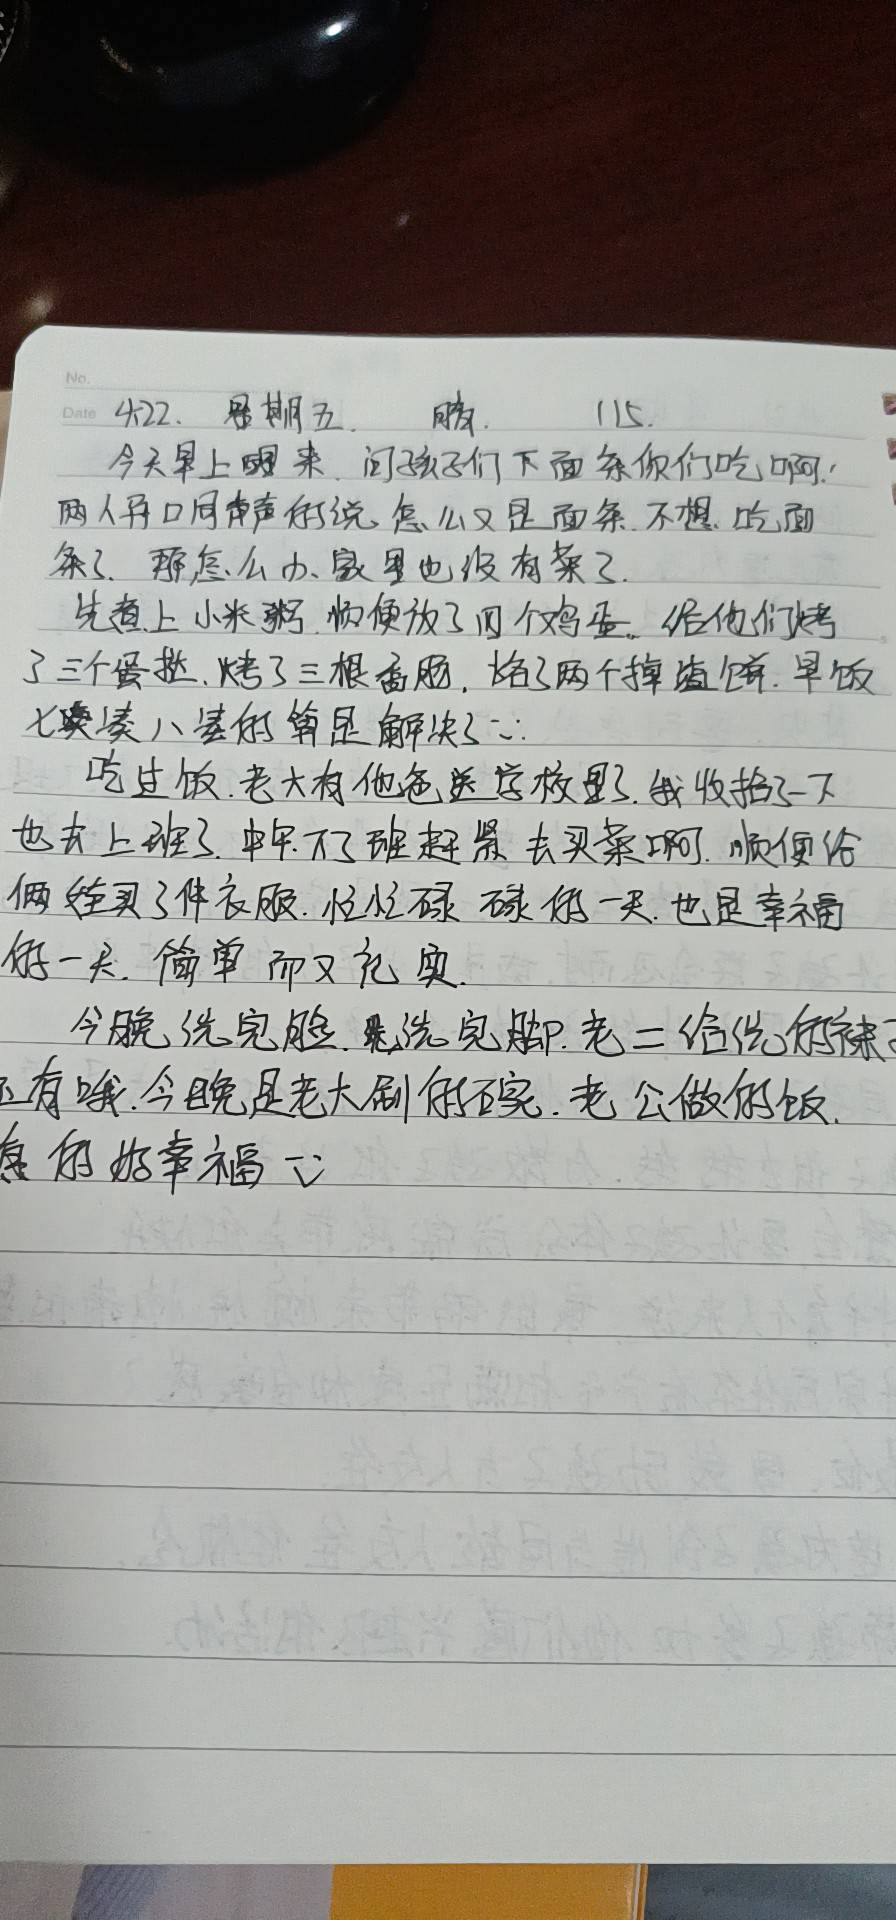 No.
Date 4.22. 星期五. 晴. 115.
今天早上醒来.问孩子们下面条你们吃啊!
两人异口同声的说.怎么又是面条.不想吃面
条了.那怎么办.家里也没有菜了.
先煮上小米粥.顺便放了四个鸡蛋.给他们烤
了三个蛋挞.烤了三根香肠.烙了两个掉渣饼.早饭
七凑八凑的算是解决了
吃过饭.老大有他爸送学校里了.我收拾了一下
也去上班了.中午下了班赶紧去买菜啊.顺便给
俩娃买了件衣服.忙忙碌碌的一天.也是幸福
的一天.简单而又充实.
今晚洗完脸.洗完脚.老二给洗的袜子
还有哦.今晚是老大刷的碗.老公做的饭.
真的好幸福